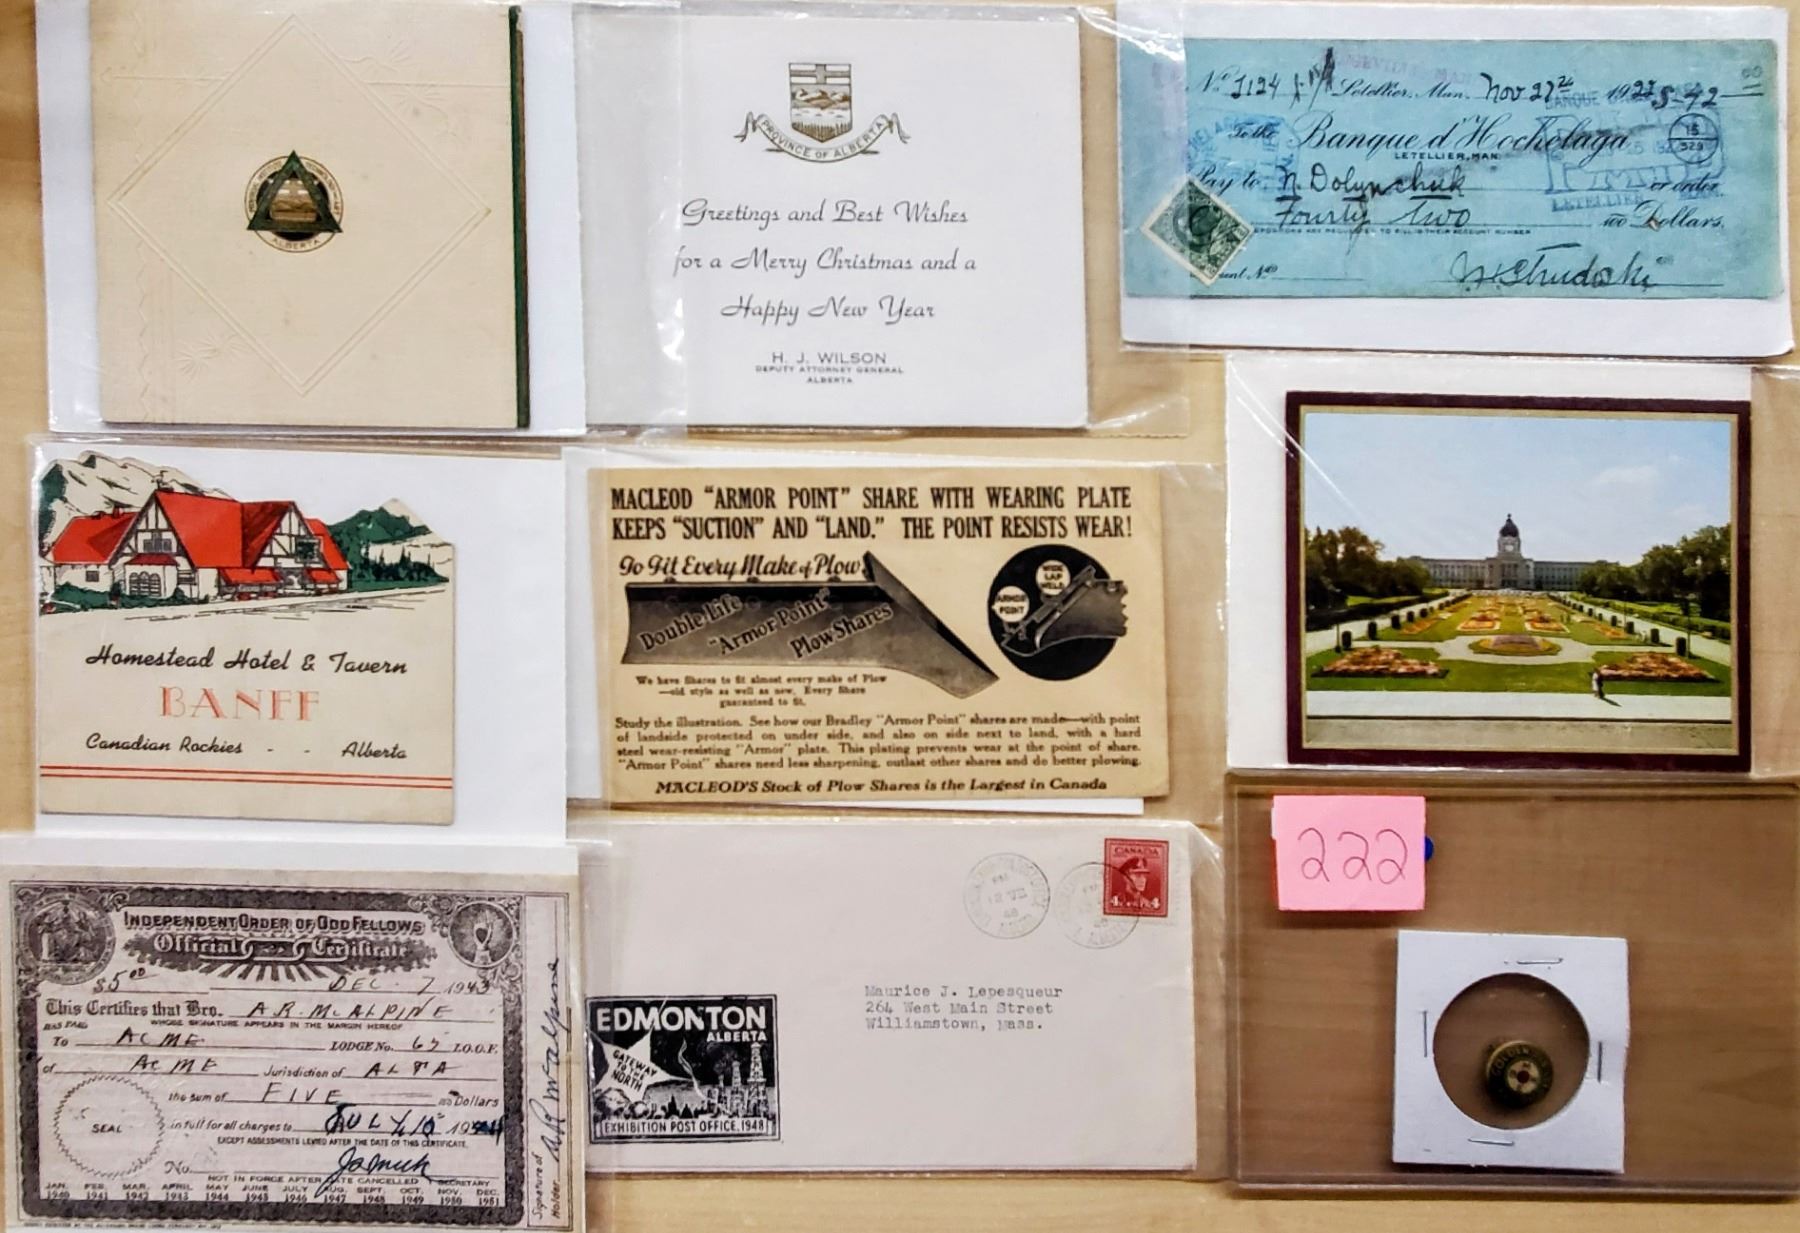 ALBERTA
PROVINCE OF ALBERTA
Greetings and Best Wishes
for a Merry Christmas and a
Happy New Year
H. J. WILSON
DEPUTY ATTORNEY GENERAL
ALBERTA
No. 1124 Letellier, Man. Nov 27 1922 $42
To the Banque d'Hochelaga
LETELLIER, MAN.
Pay to N. Dolynchuk or order
Fourty Two 00 Dollars.
DEPOSITORS ARE REQUESTED TO FILL IN THEIR ACCOUNT NUMBER
Homestead Hotel & Tavern
BANFF
Canadian Rockies - - Alberta
MACLEOD "ARMOR POINT" SHARE WITH WEARING PLATE
KEEPS "SUCTION" AND "LAND." THE POINT RESISTS WEAR!
To Fit Every Make of Plow
Double Life
"Armor Point"
Plow Shares
WIDE
LAP
WELD
ARMOR
POINT
We have Shares to fit almost every make of Plow
—old style as well as new. Every Share
guaranteed to fit.
Study the illustration. See how our Bradley "Armor Point" shares are made—with point
of landside protected on under side, and also on side next to land, with a hard
steel wear-resisting "Armor" plate. This plating prevents wear at the point of share.
"Armor Point" shares need less sharpening, outlast other shares and do better plowing.
MACLEOD'S Stock of Plow Shares is the Largest in Canada
222
INDEPENDENT ORDER OF ODD FELLOWS
Official Certificate
$5.00 DEC. 7 1943
This Certifies that Bro. A.R. McALPINE
HAS PAID WHOSE SIGNATURE APPEARS IN THE MARGIN HEREOF
To ACME LODGE No. 65 I.O.O.F.
of ACME Jurisdiction of ALTA
the sum of FIVE Dollars
in full for all charges to JULY 1st 1944
EXCEPT ASSESSMENTS LEVIED AFTER THE DATE OF THIS CERTIFICATE.
SEAL
No.
NOT IN FORCE AFTER DATE CANCELLED SECRETARY
JAN. FEB. MAR. APRIL MAY JUNE JULY AUG. SEPT. OCT. NOV. DEC.
1940 1941 1942 1943 1944 1945 1946 1947 1948 1949 1950 1951
Signature of
Holder
A R McAlpine
CANADA
4 4
Maurice J. Lepesqueur
264 West Main Street
Williamstown, Mass.
EDMONTON
ALBERTA
GATEWAY
TO THE
NORTH
EXHIBITION POST OFFICE, 1948
GOLDEN